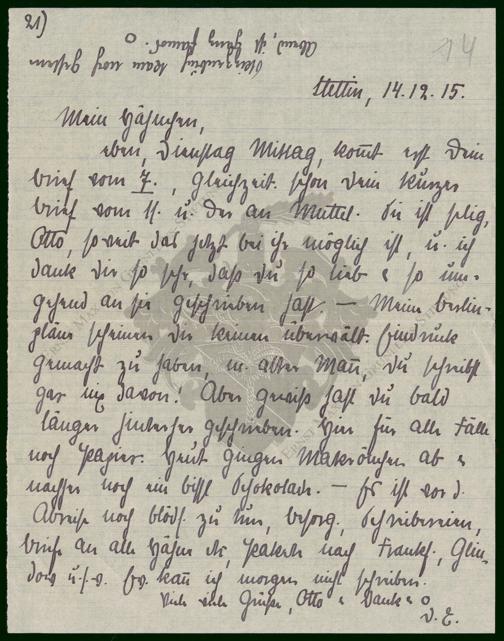 21)
14
Stettin, 14.12.15.
Mein Hähnchen,
eben, Dienstag Mittag, kommt erst Dein
Brief vom 7., gleichzeit. schon Dein kurzer
Brief vom 11. u. der an Muttel. Sie ist selig,
Otto, soweit das jetzt bei ihr möglich ist, u. ich
danke Dir so sehr, daß Du so lieb & so um-
gehend an sie geschrieben hast. — Meine Berlin-
pläne scheinen Dir keinen überwält. Eindruck
gemacht zu haben, m. alter Mann, Du schreibst
gar nix davon! Aber gewiss hast Du bald
länger hinterher geschrieben. Hier für alle Fälle
noch Papier. Heut gingen Makrönchen ab &
nachher noch ein bissl Schokolade. — Es ist vor d.
Abreise noch blöds. zu tun, besorg. Schreibereien,
Briefe an alle Hähne etc, Pakete nach Frankf.,
u.s.w. Ev. kann ich morgen nicht schreiben.
Viele viele Grüße, Otto & Danke &
D. E.